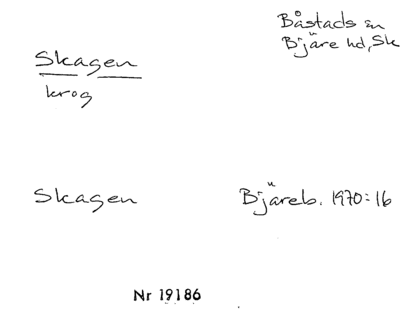 Båstads sn
Bjäre hd, Sk
Skagen
krog
Skagen
Bjäreb. 1970:16
Nr 19186